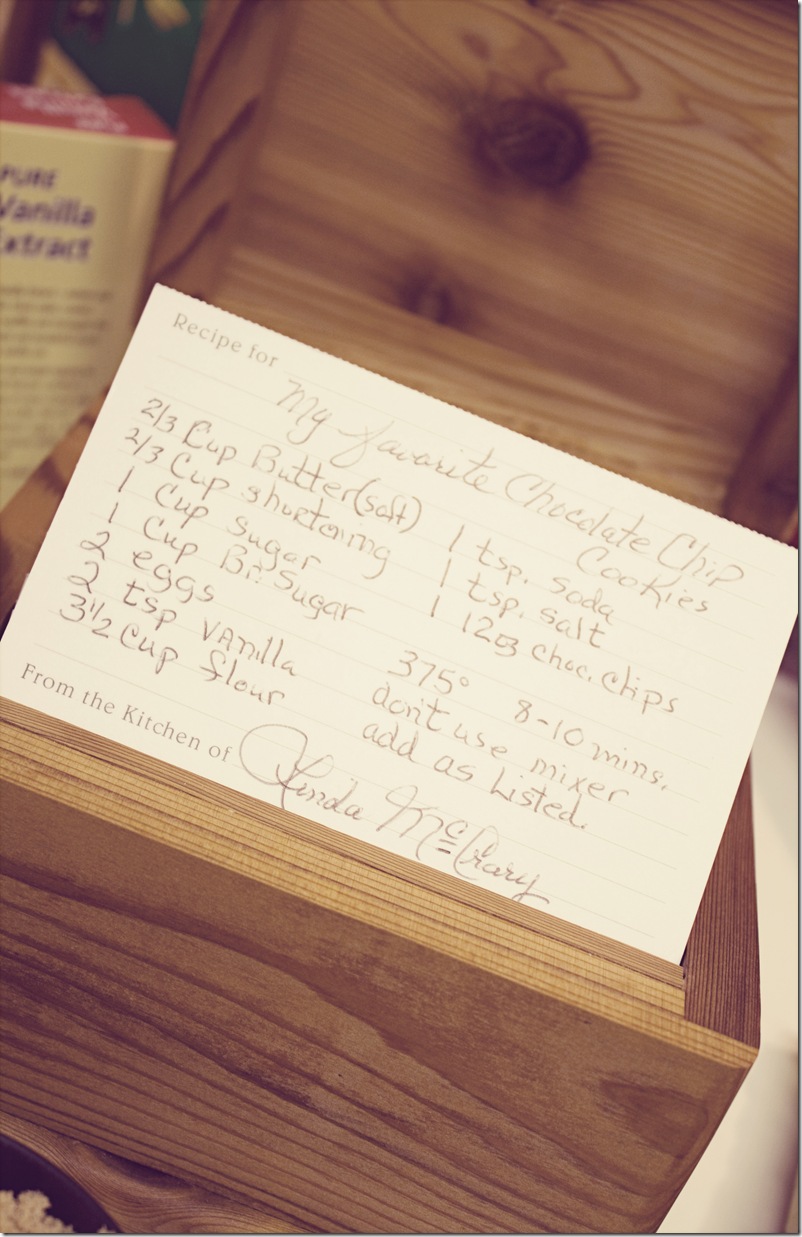 PURE
Vanilla
Extract
Recipe for My favorite Chocolate Chip
Cookies
2/3 Cup Butter(soft)
2/3 Cup shortening
1 Cup sugar
1 Cup Br. Sugar
2 eggs
2 tsp vanilla
3 1/2 Cup flour
1 tsp. soda
1 tsp. salt
1 12oz choc. chips
375° 8-10 mins.
don't use mixer
add as Listed.
From the Kitchen of Linda McCrary